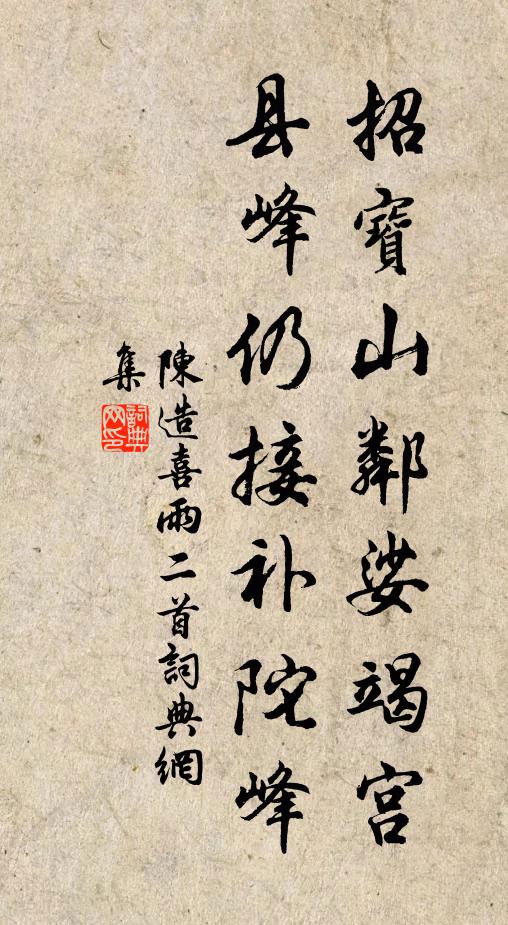 招寶山鄰娑竭宫
县峰仍接补陀峰
陳造喜雨二首詞典網
集
詞典
网印